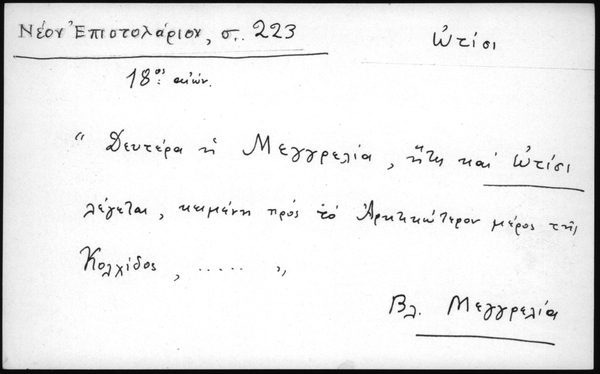 Νέον Ἐπιστολάριον, σ. 223
Ὠτίσι
18ος αἰών.
“ Δευτέρα ἡ Μεγγρελία, ἥτις καὶ Ὠτίσι
λέγεται, κειμένη πρὸς τὸ Ἀρκτικώτερον μέρος τῆς
Κολχίδος, ...... ”
Βλ. Μεγγρελία